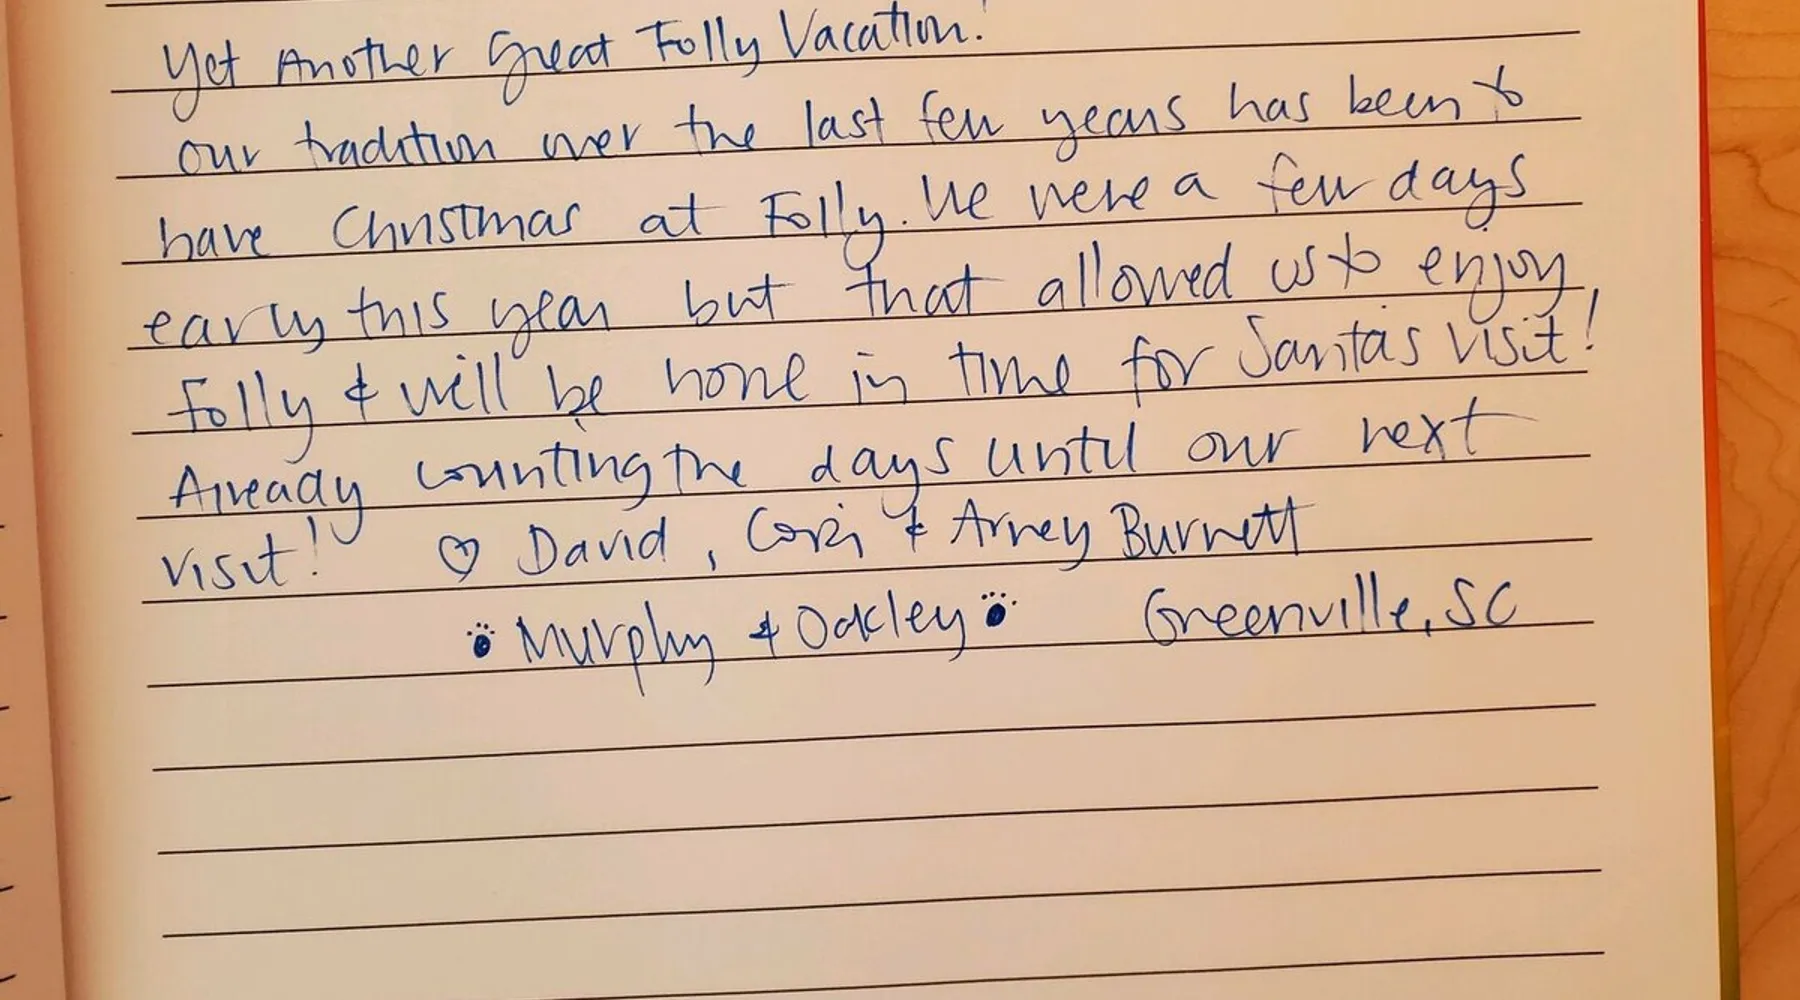 Yet Another Great Folly Vacation!
our tradition over the last few years has been to
have Christmas at Folly. We were a few days
early this year but that allowed us to enjoy
Folly & will be home in time for Santa's visit!
Already counting the days until our next
visit! ♡ David, Cori & Arney Burnett
Murphy & Oakley Greenville, SC